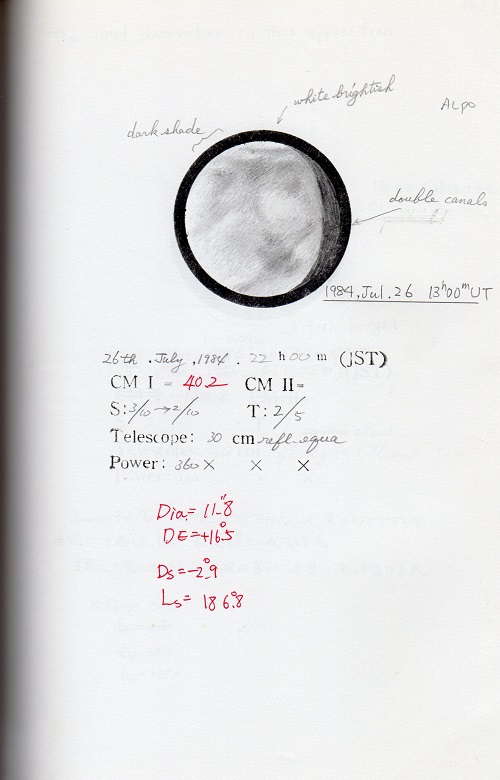 white brightish
ALPO
dark shade
double canals
1984, Jul. 26 13h00m UT
26th, July, 1984. 22 h 00 m (JST)
CM I = 40.2 CM II=
S: 3/10→2/10 T: 2/5
Telescope: 30 cm refl. equa
Power: 360× × ×
Dia= 11".8
DE=+16°.5
Ds=-2°.9
Ls= 186°.8